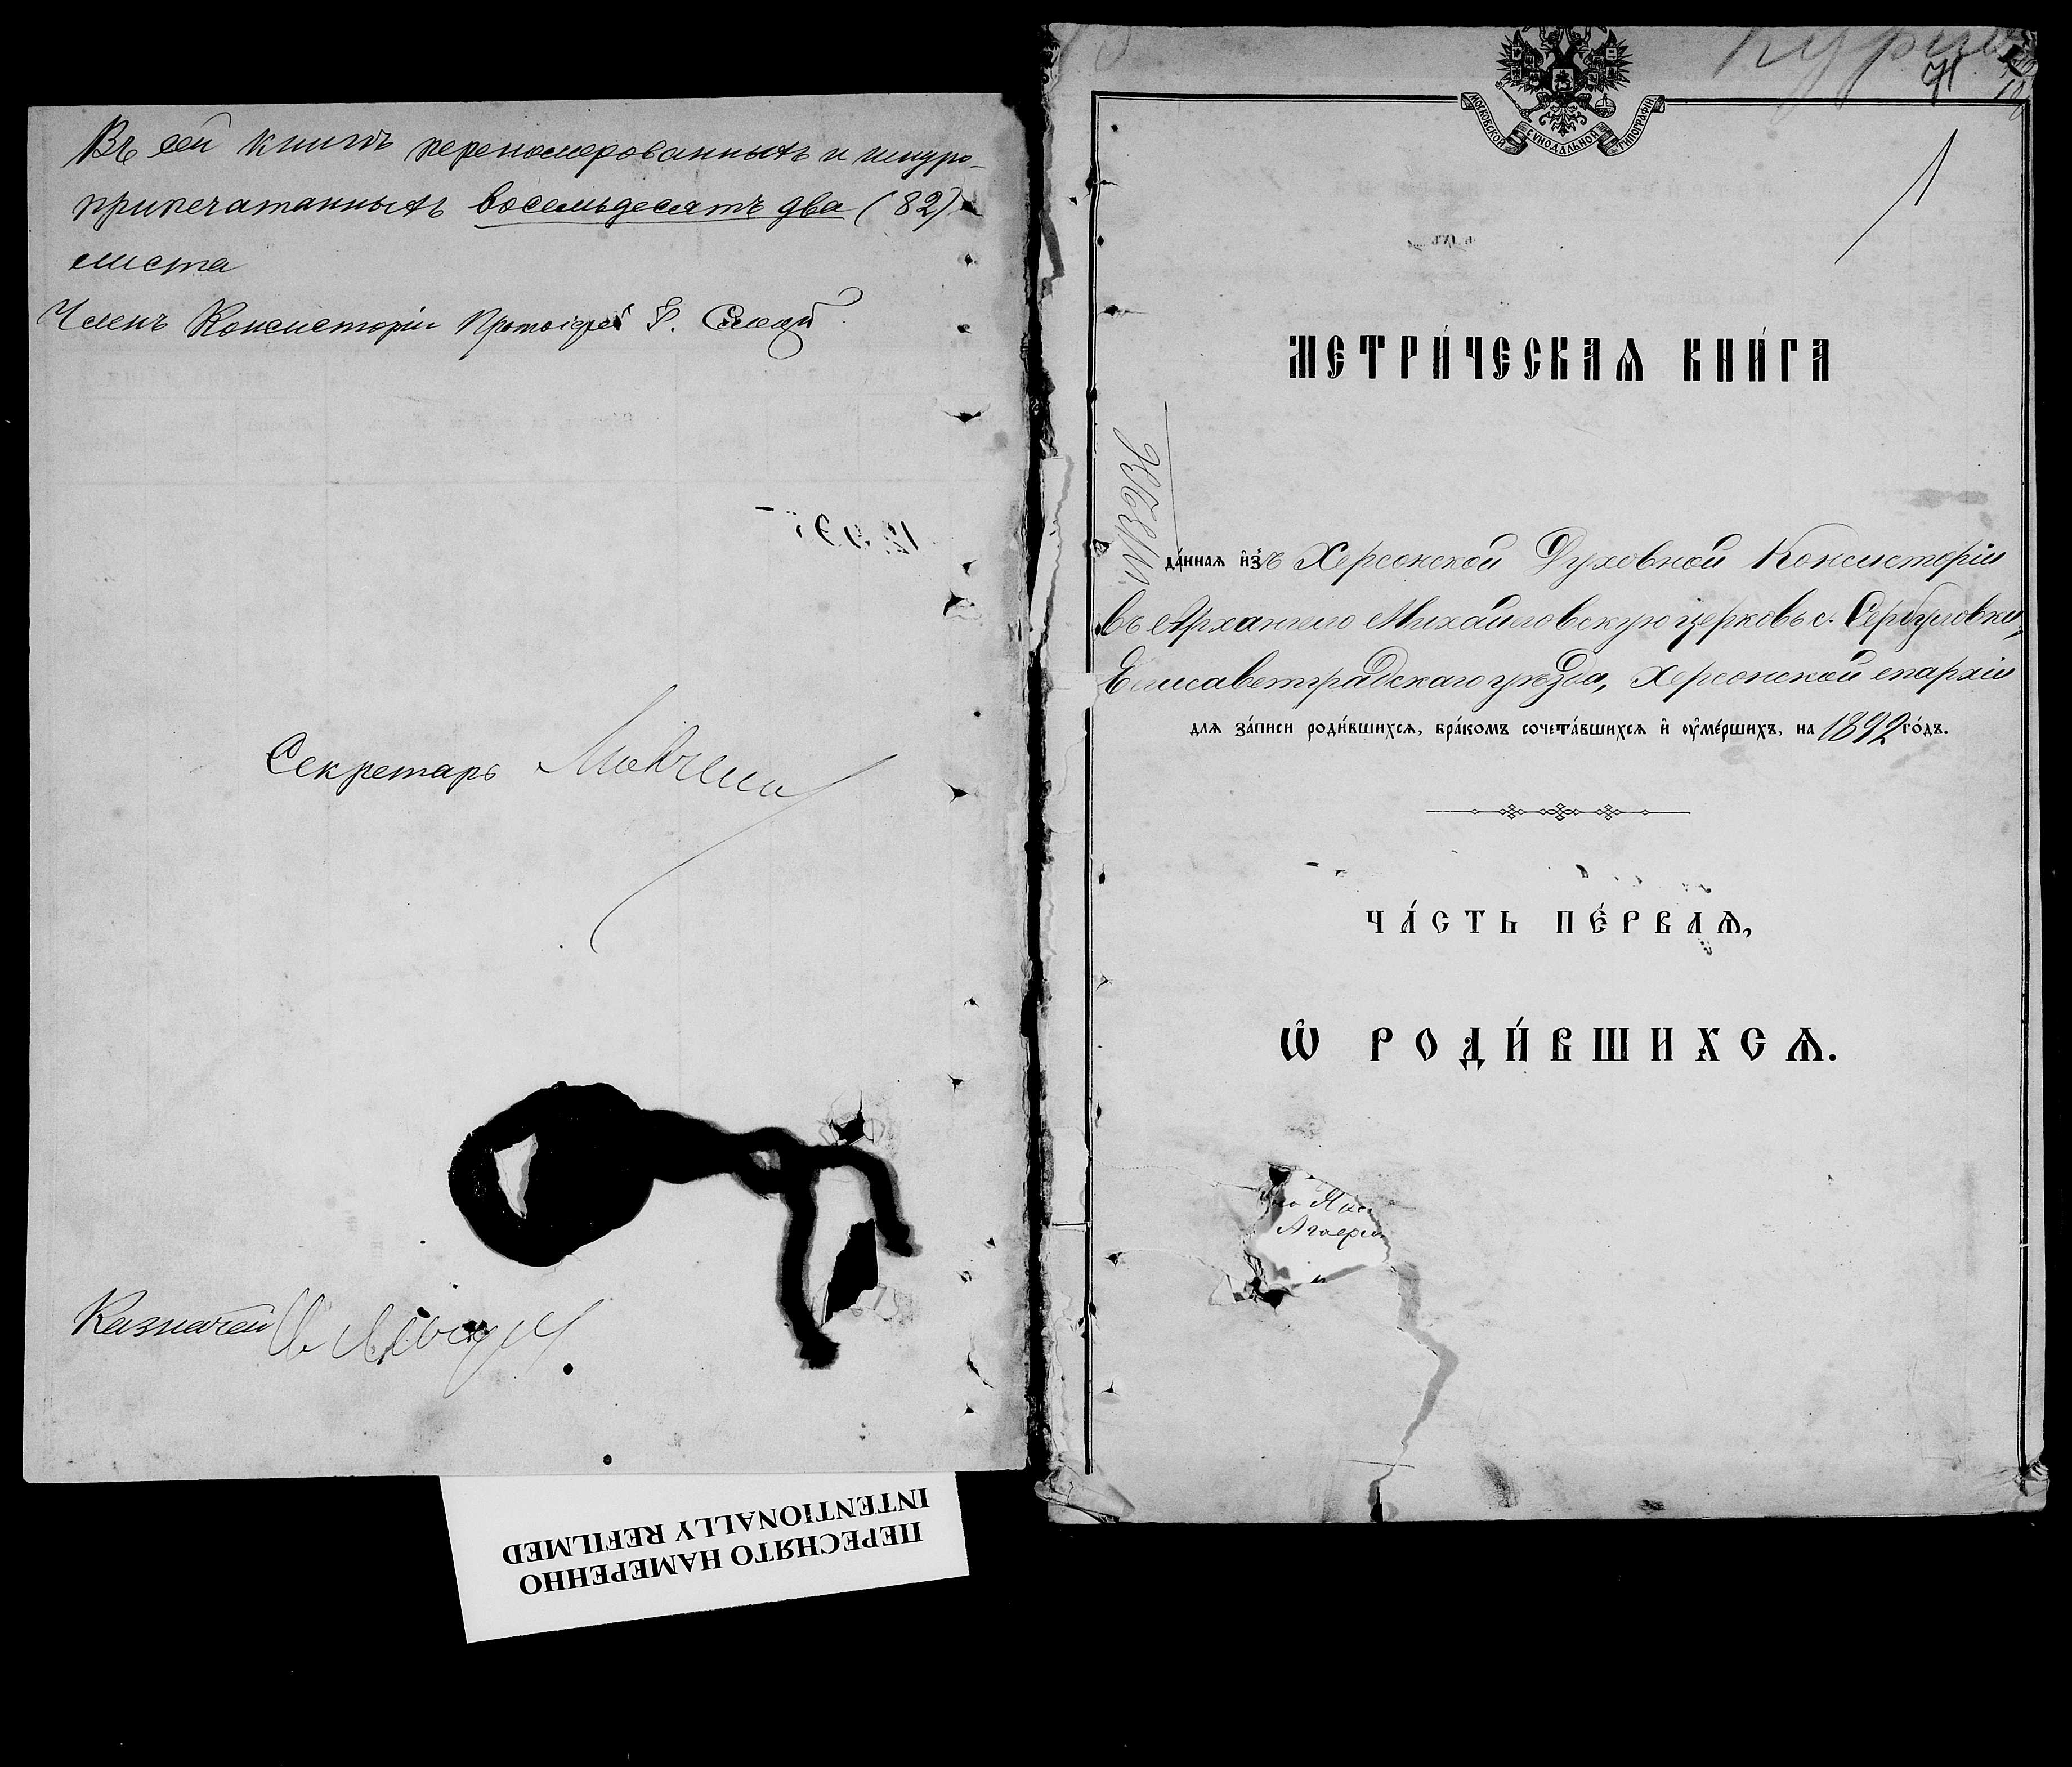 Въ сей книгѣ перенумерованныхъ и шнуро-
припечатанныхъ восемьдесятъ два (82)
листа
Членъ Консисторіи Протоіерей
Секретарь
Казначей
ПЕРЕСНЯТО НАМЕРЕННО
INTENTIONALLY REFILMED
71
МОСКОВСКОЙ СѴНОДАЛЬНОЙ ТИПОГРАФІИ
МЕТРИ́ЧЕСКАѦ КНИ́ГА
да́ннаѧ и҆зъ Херсонской Духовной Консисторіи
въ Архангело Михайловскую церковь с. Сербуловки,
Елисаветградскаго уѣзда, Херсонской епархіи
для за́писи роди́вшихсѧ, бра́комъ сочета́вшихсѧ и҆ ѹ҆ме́ршихъ, на 1892 го́дъ.
ЧА́СТЬ ПЕ́РВАѦ,
Ѡ҆ РОДИ́ВШИХСѦ.